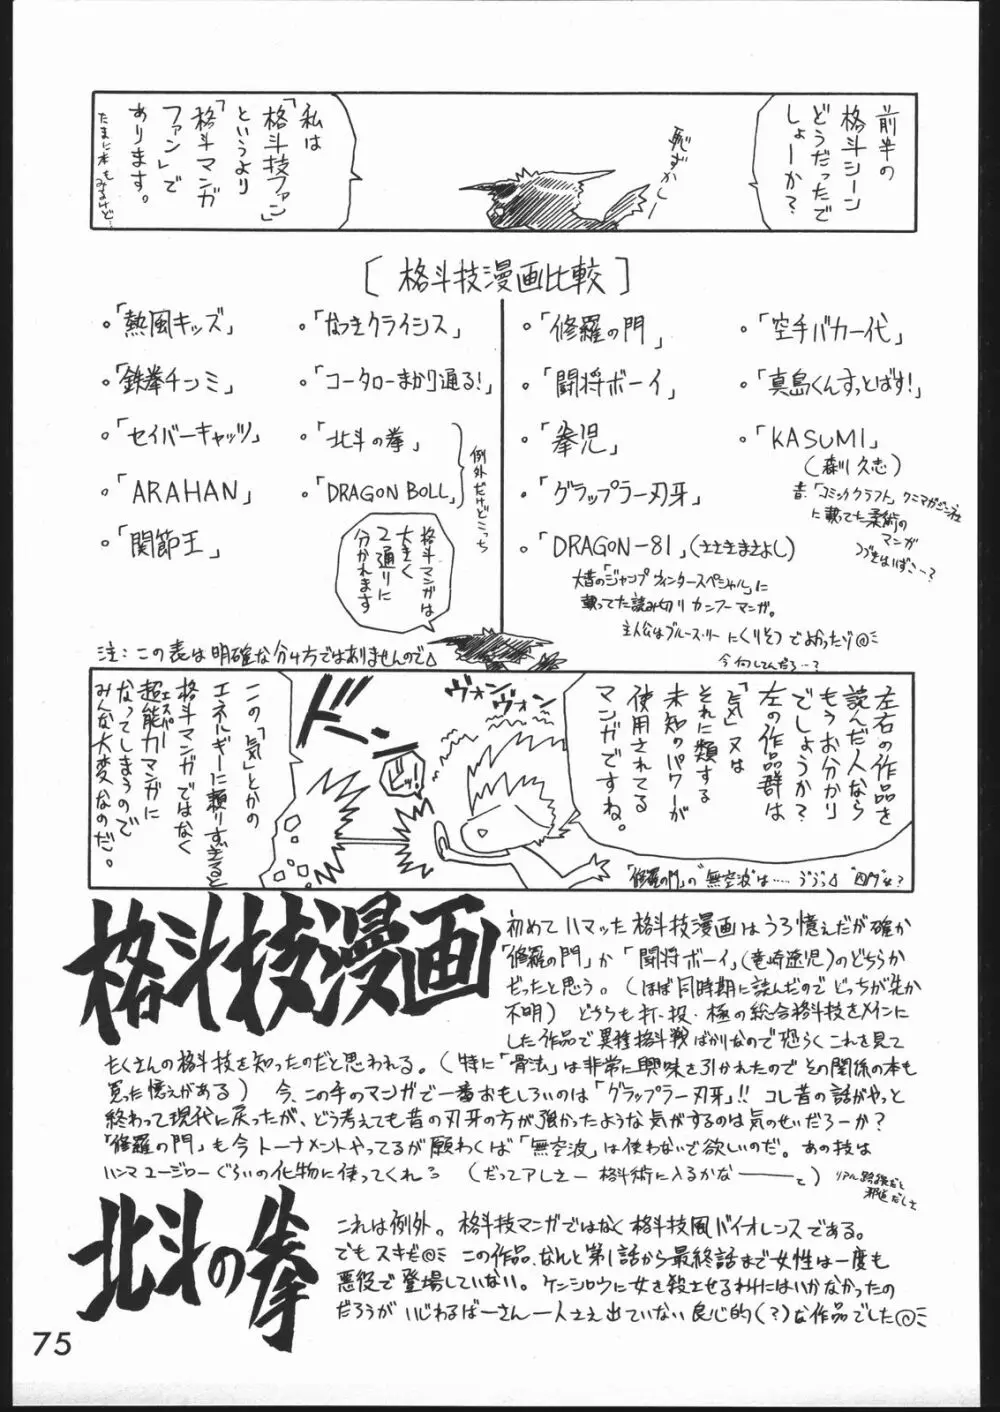 前半の
格斗シーン
どうだったで
しょーか?
恥ずかしー
私は
「格斗技ファン」
というより
「格斗マンガ
ファン」で
あります。
たまに本もみるけど…
[格斗技漫画比較]
。「熱風キッズ」
。「なつきクライシス」
。「修羅の門」
。「空手バカ一代」
。「鉄拳チンミ」
。「コータローまかり通る!」
。「闘将ボーイ」
。「真島くんすっとばす!」
。「セイバーキャッツ」
。「北斗の拳」
。「拳児」
。「KASUMI」
(森川久志)
。「ARAHAN」
。「DRAGON BOLL」
例外だけどこっち
。「グラップラー刃牙」
昔、「コミッククラフト」ワニマガジン社
に載てた柔術の
マンガ
つづきはいずこ…?
。「関節王」
格斗マンガは
大きく
2通りに
分かれます
。「DRAGON-81」(ささきまさよし)
大昔の「ジャンプウィンタースペシャル」に
載ってた読み切りカンフーマンガ。
主人公はブルース・リーにくりそつでよかったゾ
今何してんだろ…?
注:この表は明確な分け方ではありませんので
左右の作品を
読んだ人なら
もうお分かり
でしょうか?
左の作品群は
「気」又は
それに類する
未知のパワーが
使用されてる
マンガですね。
「修羅の門」の"無空波"は……
ヴォン
ヴォン
ドン
この「気」とかの
エネルギーに頼りすぎると
格斗マンガではなく
超能力マンガに
エスパー
なってしまうので
みんな大変なのだ。
格斗技漫画
初めてハマッた格斗技漫画はうろ憶えだが確か
「修羅の門」か「闘将ボーイ」(竜崎遼児)のどちらか
だったと思う。(ほぼ同時期に読んだのでどっちが先か
不明)どちらも打・投・極の総合格斗技をメインに
した作品で異種格斗戦ばかりなので恐らくこれを見て
たくさんの格斗技を知ったのだと思われる。(特に「骨法」は非常に興味を引かれたのでその関係の本も
買った憶えがある)今、この手のマンガで一番おもしろいのは「グラップラー刃牙」!!コレ昔の話がやっと
終わって現代に戻ったが、どう考えても昔の刃牙の方が強かったような気がするのは気のせいだろーか?
「修羅の門」も今トーナメントやってるが願わくば「無空波」は使わないで欲しいのだ。あの技は
ハンマユージローぐらいの化物に使ってくれ
(だってアレさー格斗術に入るかなーーーと)
リアル路線だと
邪道だしさ
北斗の拳
これは例外。格斗技マンガではなく格斗技風バイオレンスである。
でもスキだ この作品、なんと第1話から最終話まで女性は一度も
悪役で登場していない。ケンシロウに女を殺させるわけにはいかなかったの
だろうがいじわるばーさん一人さえ出ていない良心的(?)な作品でした
75